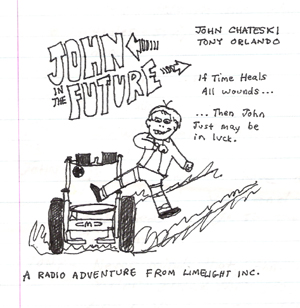 JOHN
IN THE
FUTURE
JOHN CHATESKI
TONY ORLANDO
If Time Heals
All wounds...
... Then John
Just may be
in luck.
GMD
A RADIO ADVENTURE FROM LIMELIGHT INC.